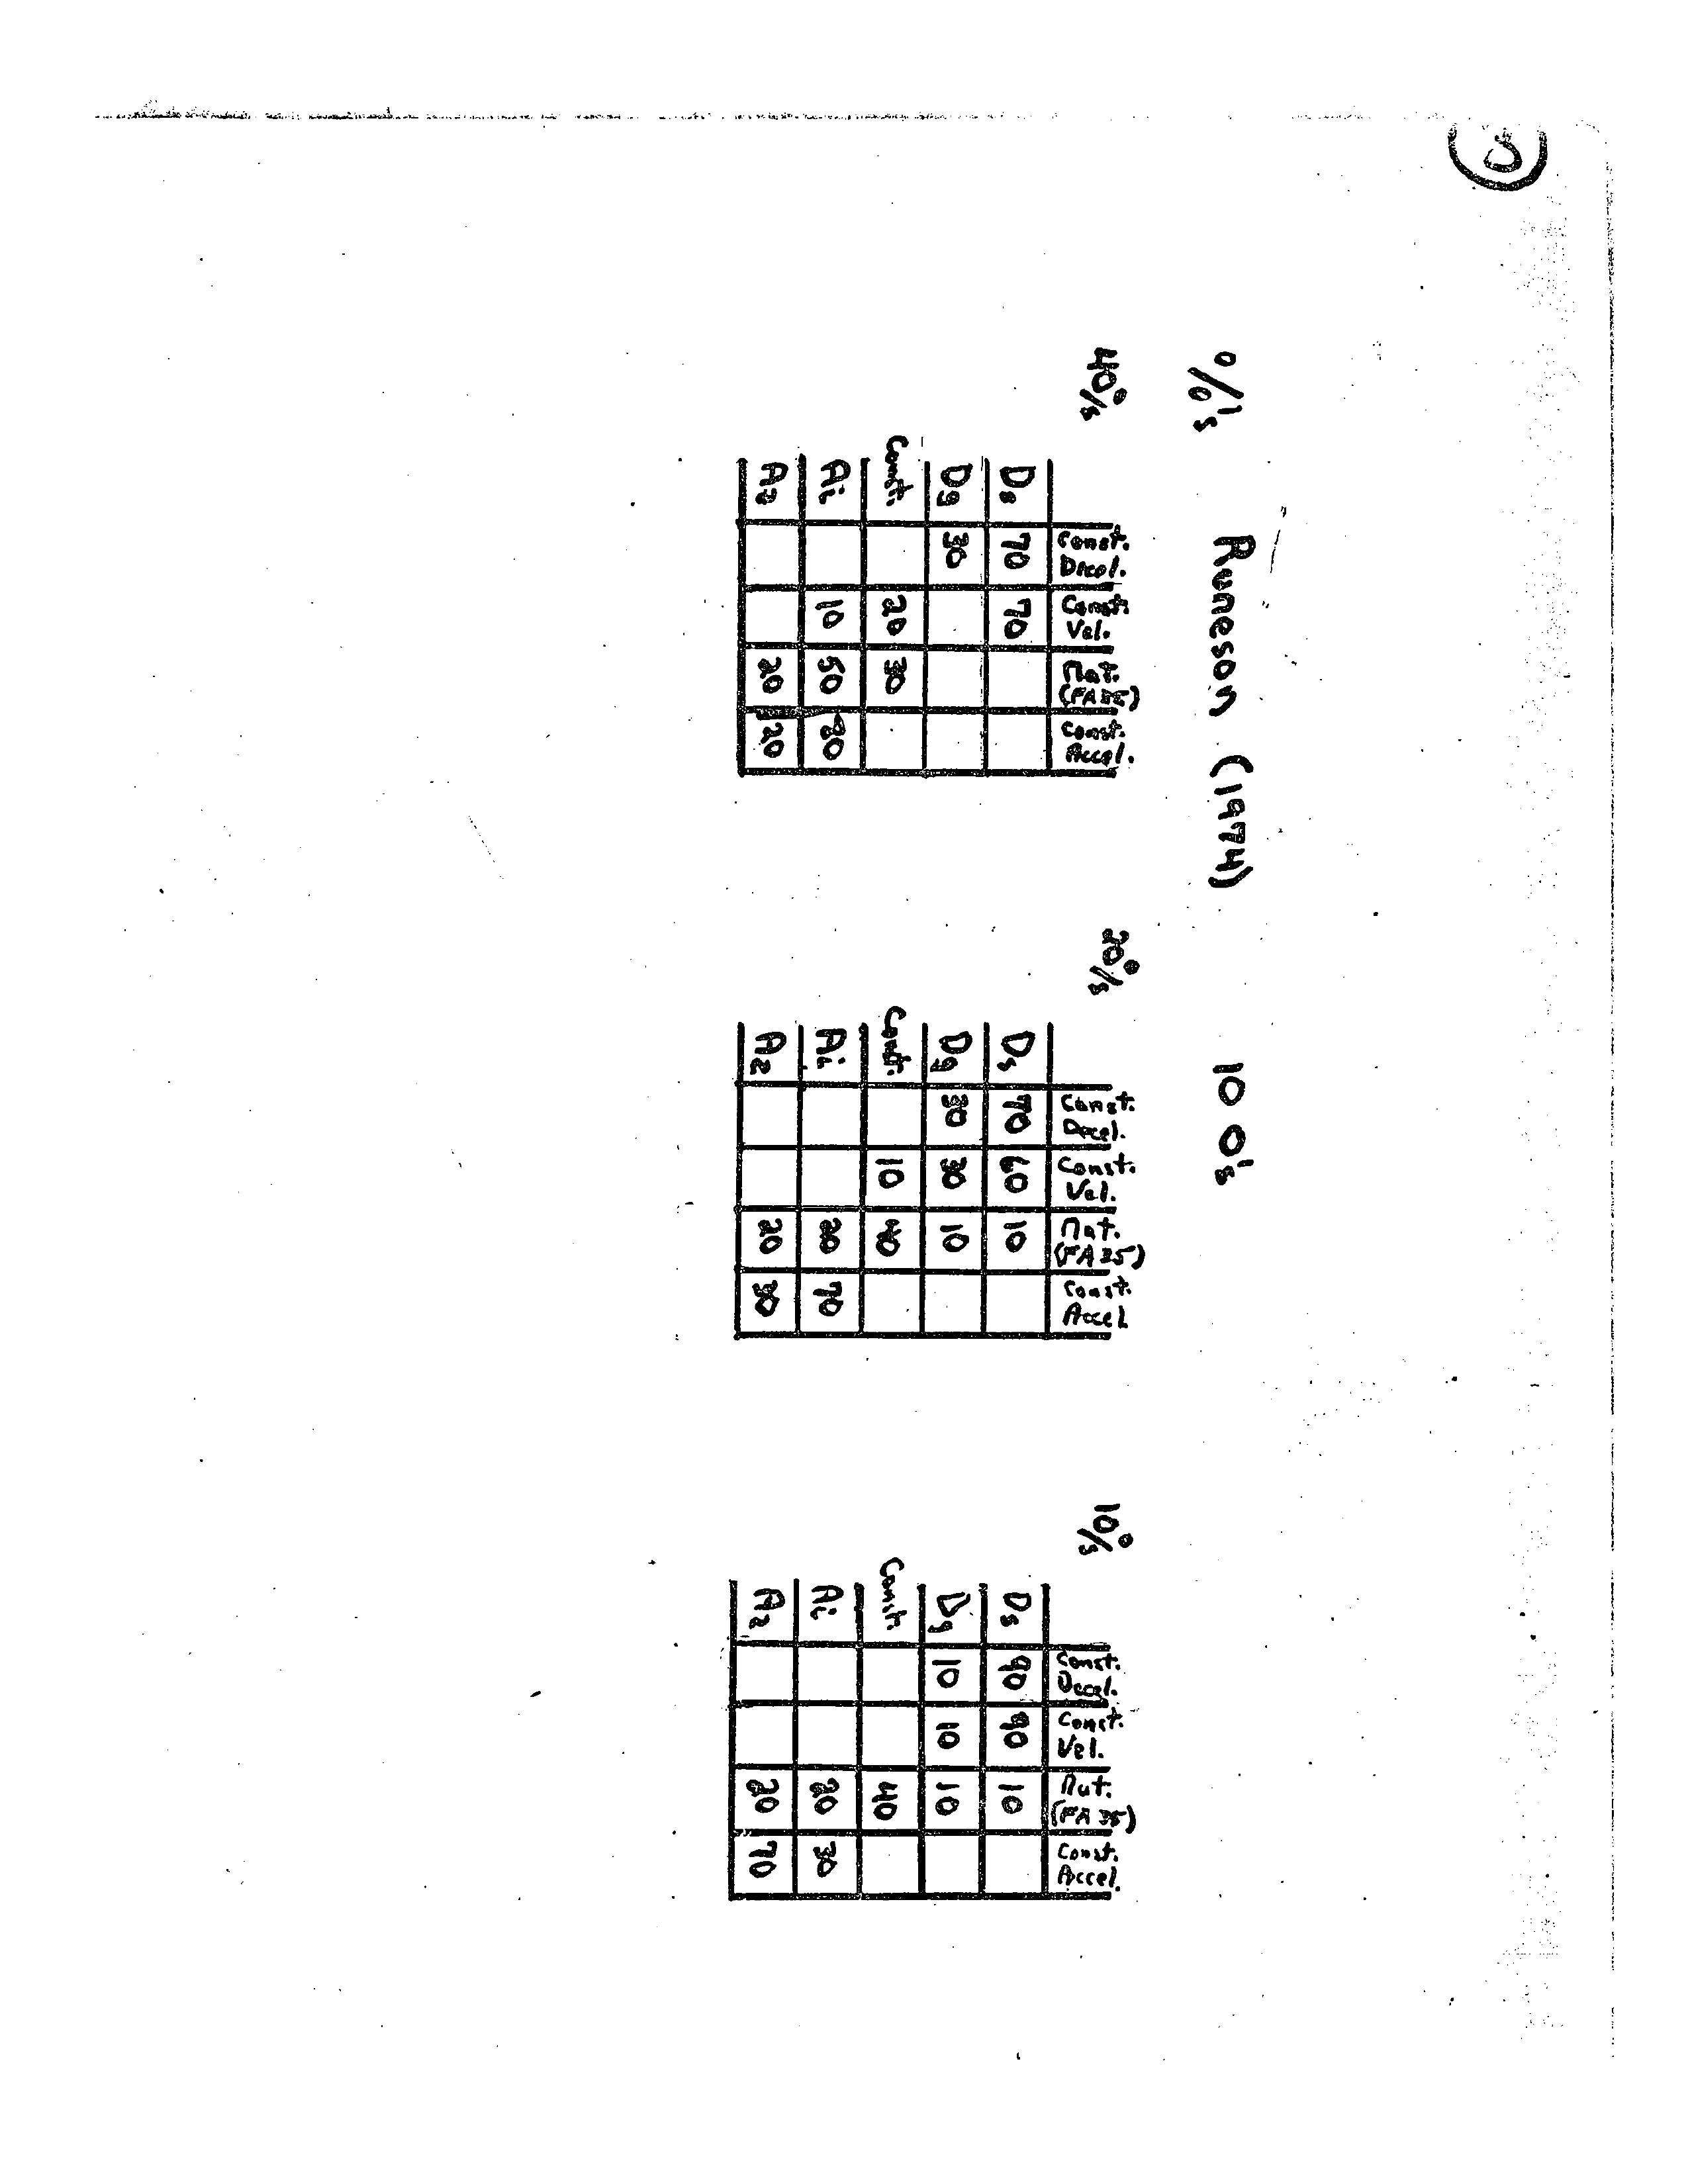 %'s Runeson (1974) 10 O's
40°/s
Const. Decel. Const. Vel. Nat. (FA35) Const. Accel.
Ds 70 70
Dg 30
Const. 20 30
Ai 10 50 80
A2 20 20
20°/s
Const. Decel. Const. Vel. Nat. (FA35) Const. Accel
Ds 70 60 10
Dg 30 30 10
Const. 10 40
Ai 20 70
A2 20 30
10°/s
Const. Decel. Const. Vel. Nat. (FA35) Const. Accel.
Ds 90 90 10
Dg 10 10 10
Const. 40
Ai 20 30
A2 20 70